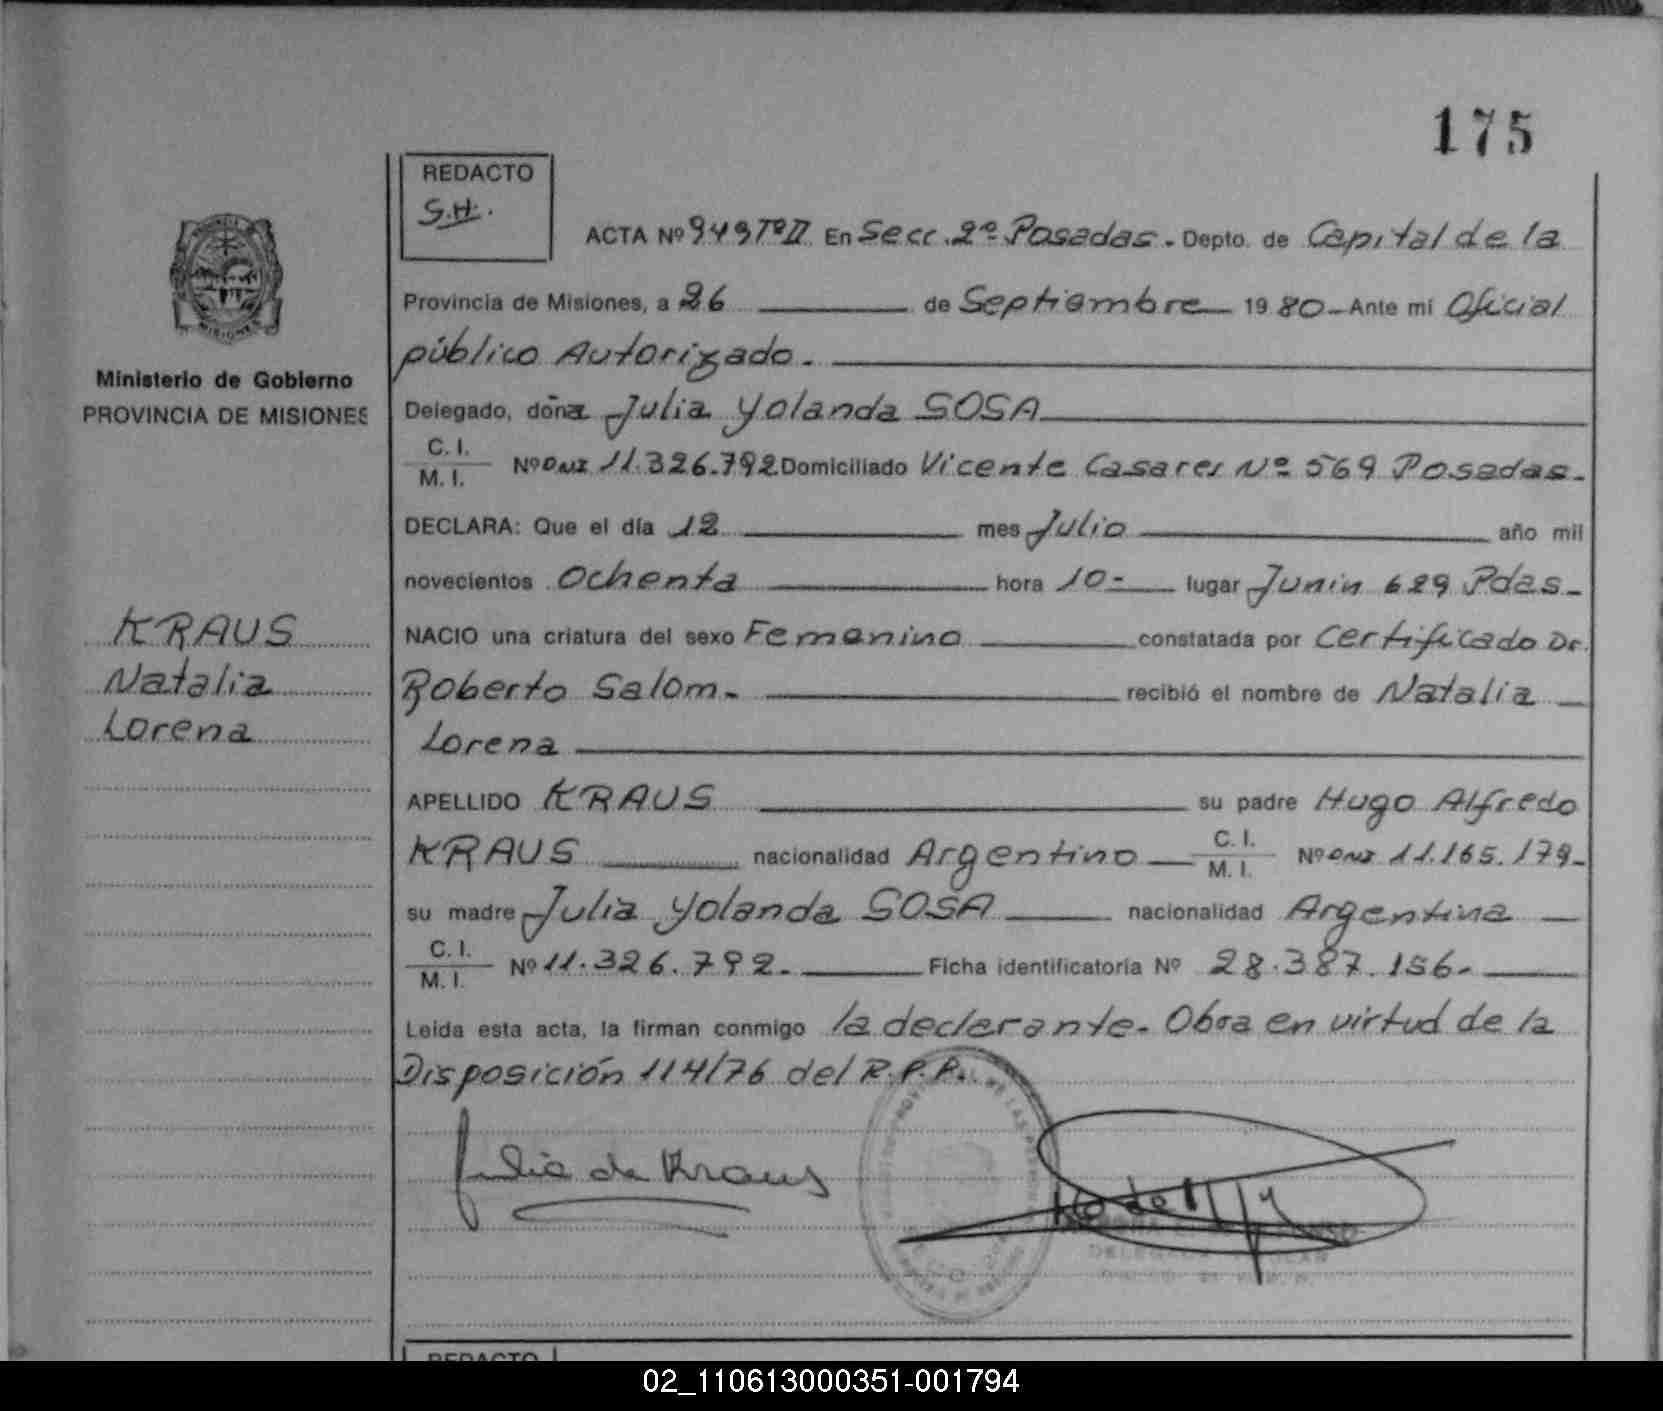 175
REDACTO
S.H.
ACTA Nº 949 TºII En Secc. 2º Posadas. Depto. de Capital de la
Provincia de Misiones, a 26 de Septiembre 19 80 Ante mi Oficial
público Autorizado.
Delegado, doña Julia Yolanda SOSA
C. I.
M. I. Nº DNI 11.326.792 Domiciliado Vicente Casares Nº 569 Posadas.
DECLARA: Que el día 12 mes Julio año mil
novecientos Ochenta hora 10- lugar Junin 629 Pdas.
NACIO una criatura del sexo Femenino constatada por Certificado Dr.
Roberto Salom. recibió el nombre de Natalia
Lorena
APELLIDO KRAUS su padre Hugo Alfredo
KRAUS nacionalidad Argentino C. I.
M. I. Nº DNI 11.165.179-
su madre Julia Yolanda SOSA nacionalidad Argentina
C. I.
M. I. Nº 11.326.792. Ficha identificatoria Nº 28.387.156.
Leida esta acta, la firman conmigo la declarante. Obra en virtud de la
Disposición 114/76 del R.P.P.
Julia de Kraus
Ministerio de Gobierno
PROVINCIA DE MISIONES
KRAUS
Natalia
Lorena
REDACTO
02_110613000351-001794